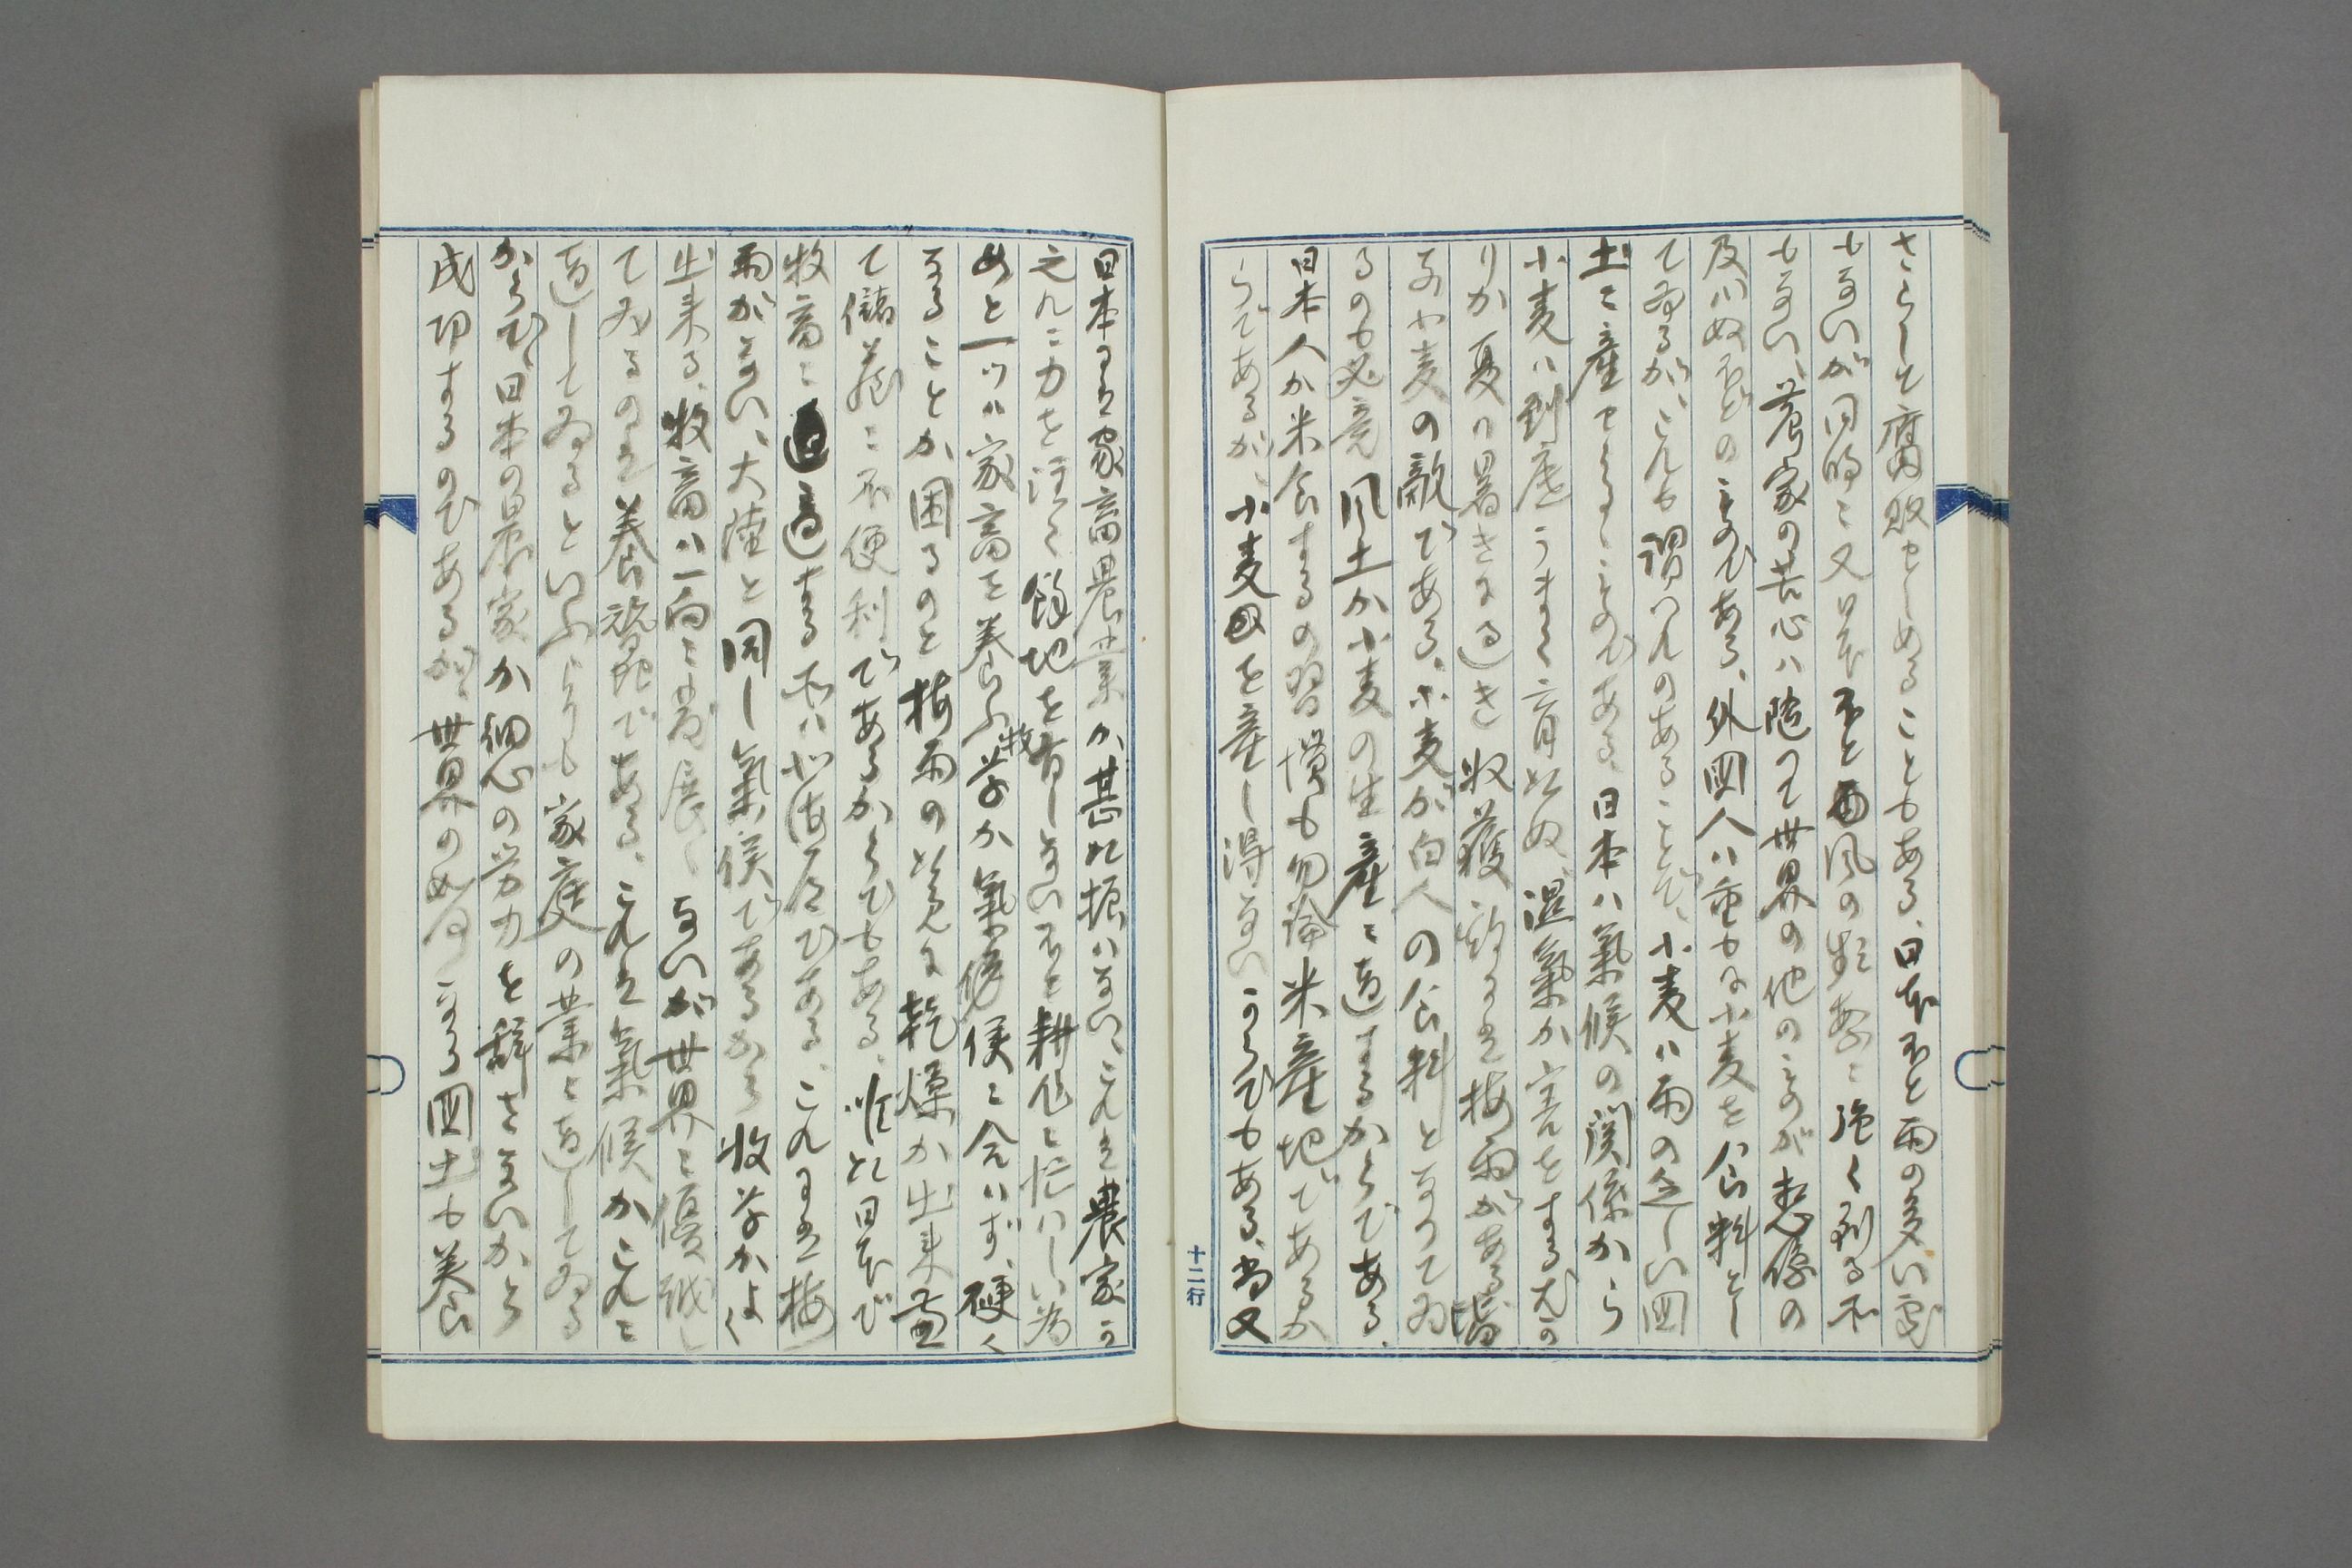 さらして腐敗せしめることもある、日本ほと雨の多い処
もないが同時に又日本ほと暴風の頻繁に強く到る処
もない、農家の苦心ハ随つて世界の他のものが想像の
及ハぬほどのものである、外国人ハ重もに小麦を食料とし
てゐるが、これも謂ハれのあることで、小麦ハ雨の乏しい国
土に産せらるゝものである、日本ハ氣候の関係から
小麦ハ到底うまく育たぬ、湿氣か害をするはか
りか夏の暑きに過き収獲期にハ梅雨がある皆
な小麦の敵である、小麦が白人の食料となつてゐ
るのも必竟風土か小麦の生産に適するからである、
日本人か米食するの習慣も勿論米産地であるか
らであるが、小麦を産し得ないからでもある、尚又
日本にハ家畜農業か甚た振ハない、これハ農家か
之れに力を注く餘地を有しないほと耕作に忙ハしい為
めと一ツハ家畜を養ふ牧草か氣候に合ハず、硬く
なることか困るのと梅雨の後れに乾燥か出来兼
て儲蔵に不便利であるからでもある、唯た日本で
牧畜に適する所ハ北海道である、これにハ梅
雨がない、大陸と同し氣候であるから牧草かよく
出来る、牧畜ハ一向に発展しないが世界に優越し
てゐるのハ養蚕である、これハ氣候かこれに
適してゐるといふよりも家庭の業に適してゐる
からで、日本の農家か細心の労力を辞さないから
成功するのである、が、世界の如何なる国土も養
十二行